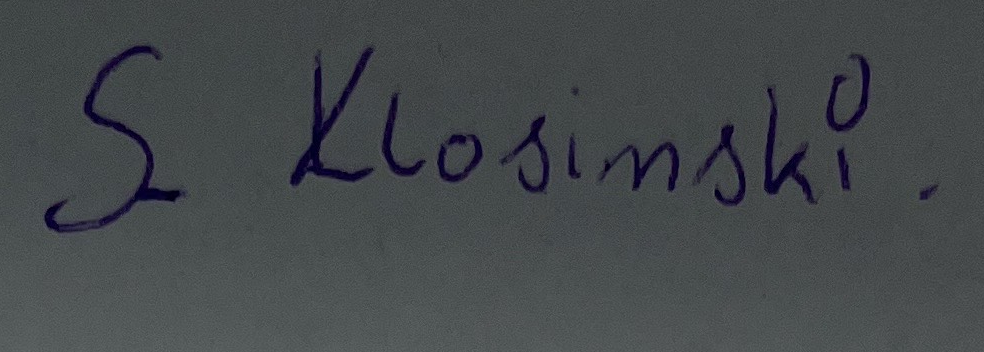 S Klosinski.